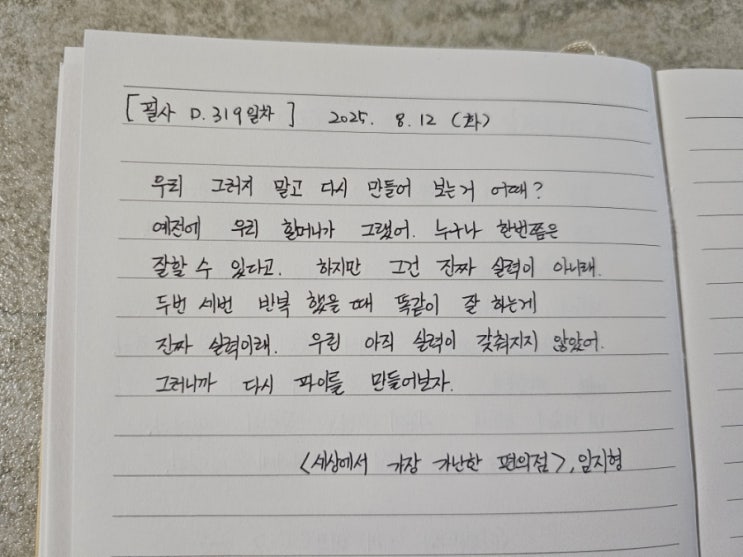 [필사 D.319일차] 2025. 8.12 (화)
우리 그러지 말고 다시 만들어 보는거 어때?
예전에 우리 할머니가 그랬어. 누구나 한번쯤은
잘할 수 있다고. 하지만 그건 진짜 실력이 아니래.
두번 세번 반복 했을 때 똑같이 잘 하는게
진짜 실력이래. 우린 아직 실력이 갖춰지지 않았어.
그러니까 다시 파이를 만들어보자.
<세상에서 가장 가난한 편의점>, 임지형